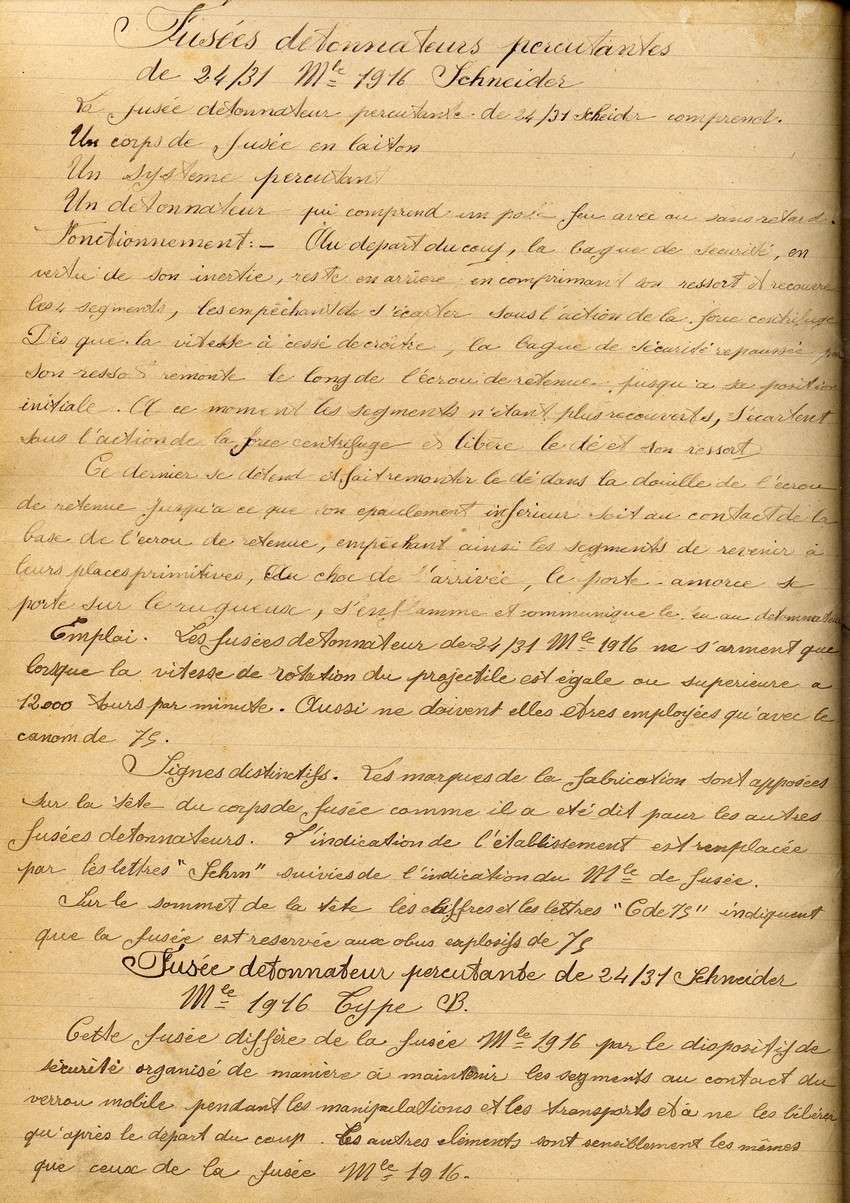 Fusées détonnateurs percutantes
de 24/31 Mle 1916 Schneider
La fusée détonnateur percutante de 24/31 Scheider comprend.
Un corps de fusée en laiton
Un système percutant
Un détonnateur qui comprend un feu avec ou sans retard.
Fonctionnement:- Au depart du coup, la bague de sécurité, en
vertu de son inertie, reste en arriere en comprimant son ressort et recouvre
les 4 segments, les empêchant de s'écarter sous l'action de la force centrifuge
Dès que la vitesse à cessé de croître, la bague de sécurité repoussée par
son ressort remonte le long de l'écrou de retenue jusqu'a sa position
initiale. A ce moment les segments n'étant plus recouverts, s'écartent
sous l'action de la force centrifuge et libère le dé et son ressort
Ce dernier se détend et fait remonter le dé dans la douille de l'écrou
de retenue jusqu'a ce que son epaulement inferieur soit au contact de la
base de l'écrou de retenue, empêchant ainsi les segments de revenir à
leurs places primitives, Au choc de l'arrivée, le porte-amorce se
porte sur le rugueux, s'enflamme et communique le feu au détonnateur
Emploi. Les fusées detonnateur de 24/31 Mle 1916 ne s'arment que
lorsque la vitesse de rotation du projectile est égale ou superieure a
12.000 tours par minute. Aussi ne doivent elles êtres employées qu'avec le
canom de 75.
Signes distinctifs. Les marques de la fabrication sont apposées
sur la tête du corps de fusée comme il a eté dit pour les autres
fusées detonnateurs. L'indication de l'établissement est remplacée
par les lettres "Schm" suivies de l'indication du Mle de fusée.
Sur le sommet de la tête les chiffres et les lettres "C de 75" indiquent
que la fusée est reservée aux obus explosifs de 75
Fusée detonnateur percutante de 24/31 Schneider
Mle 1916 Type B.
Cette fusée diffère de la fusée Mle 1916 par le dispositif de
sécurité organisé de manière à maintenir les segments au contact du
verrou mobile pendant les manipulations et les transports et à ne les libérer
qu'après le départ du coup. Les autres eléments sont sensiblement les mêmes
que ceux de la fusée Mle 1916.